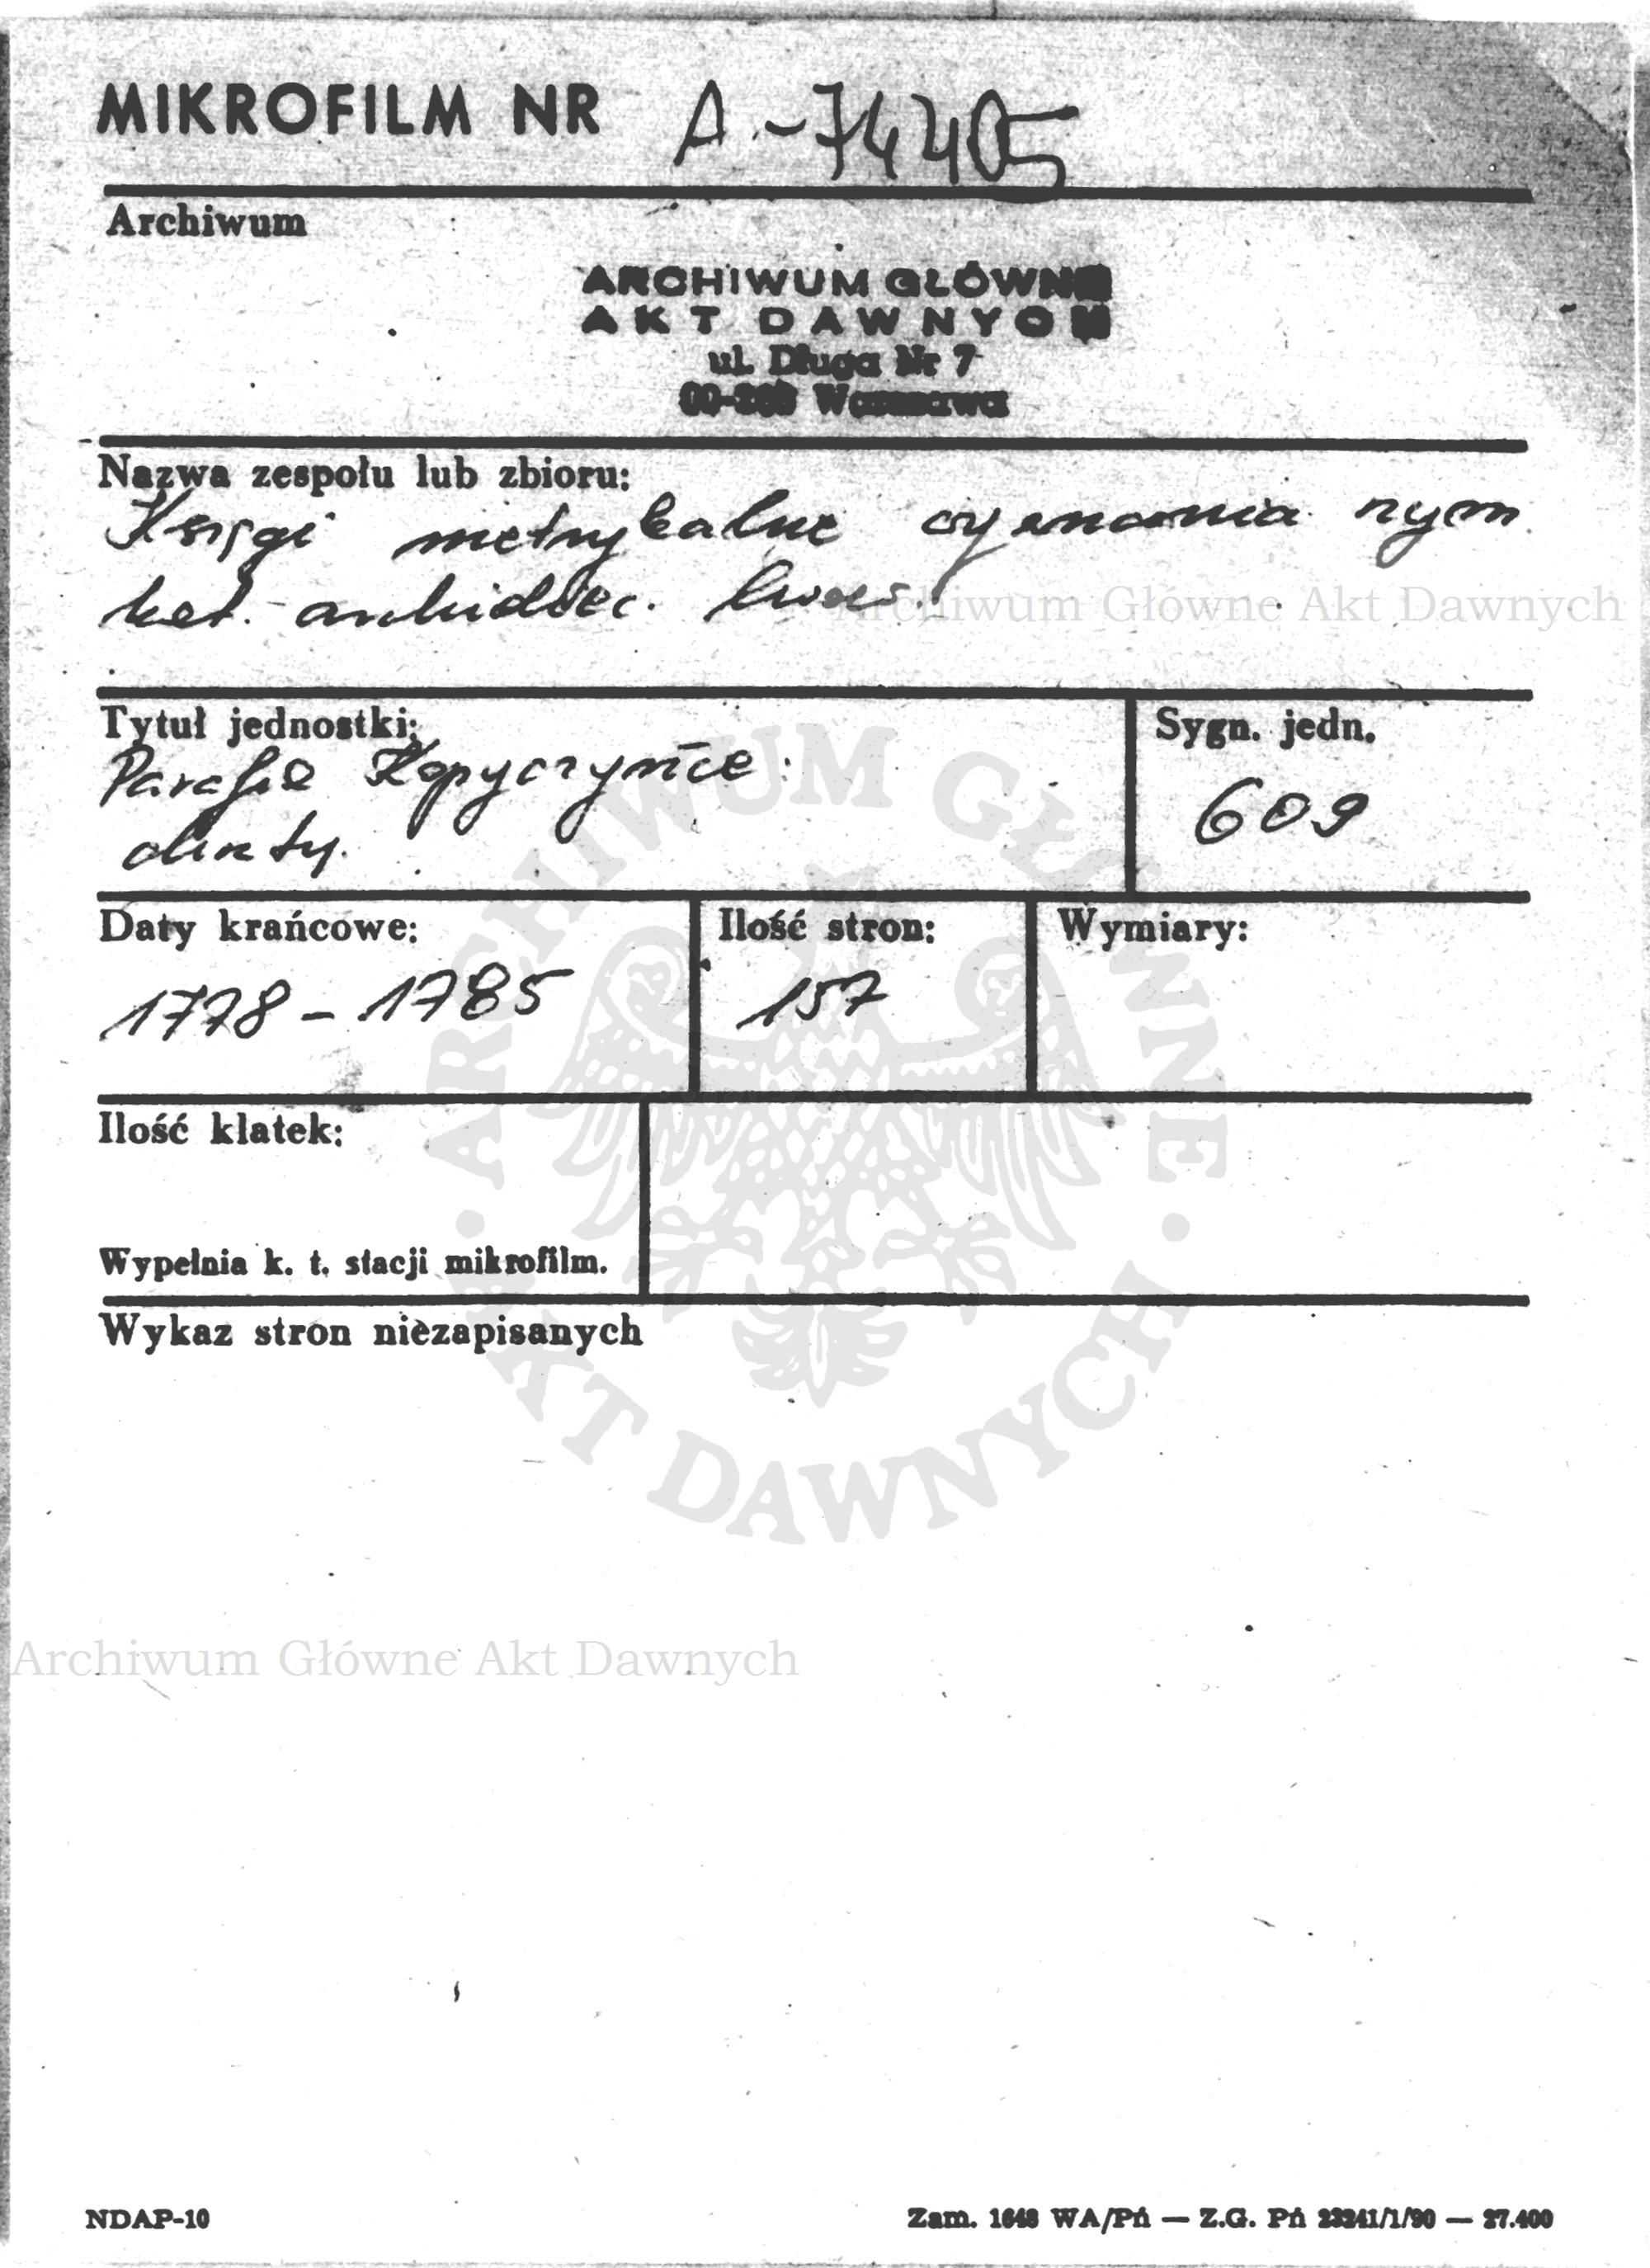 MIKROFILM NR A-74405
Archiwum
ARCHIWUM GŁÓWNE
AKT DAWNYCH
ul. Długa Nr 7
Warszawa
Nazwa zespołu lub zbioru:
Księgi metrykalne wyznania rzym
kat. archidiec. lwows.
Archiwum Główne Akt Dawnych
Tytuł jednostki:
Sygn. jedn.
Parafia Kopyczyńce:
chrzty.
609
Daty krańcowe:
Ilość stron:
Wymiary:
1778 - 1785
157
Ilość klatek:
Wypełnia k. t. stacji mikrofilm.
Wykaz stron niezapisanych
ARCHIWUM GŁÓWNE AKT DAWNYCH
Archiwum Główne Akt Dawnych
NDAP-10
Zam. 1648 WA/Pń — Z.G. Pń 23241/1/90 — 27.400